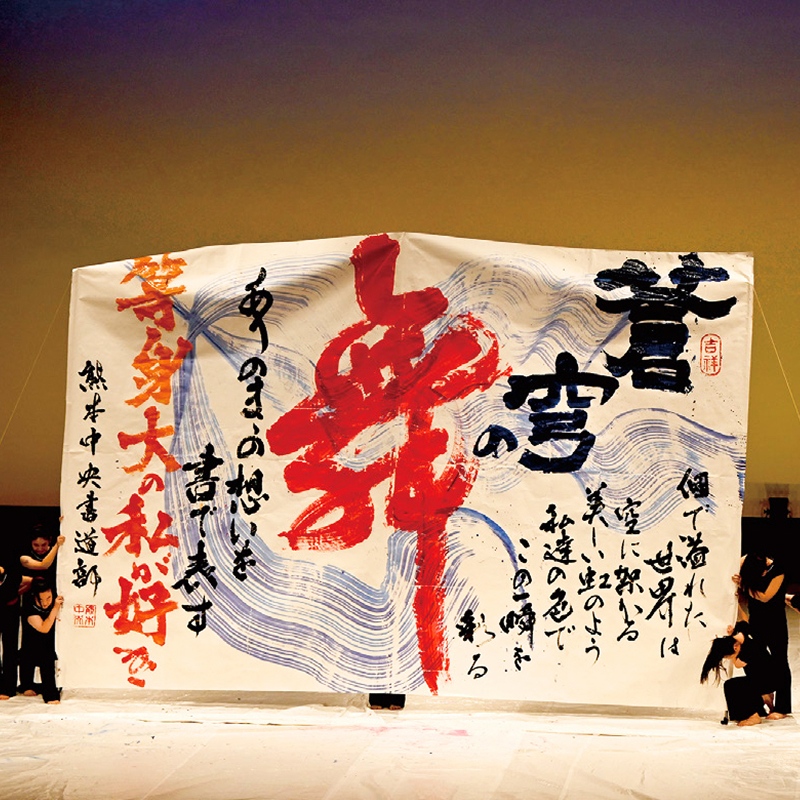 蒼
穹の
舞
吉祥
個で溢れた
世界は
空に架かる
美しい虹のよう
私達の色で
この一瞬を
彩る
ありのまゝの想いを
書で表す
等身大の私が好き
熊本中央書道部